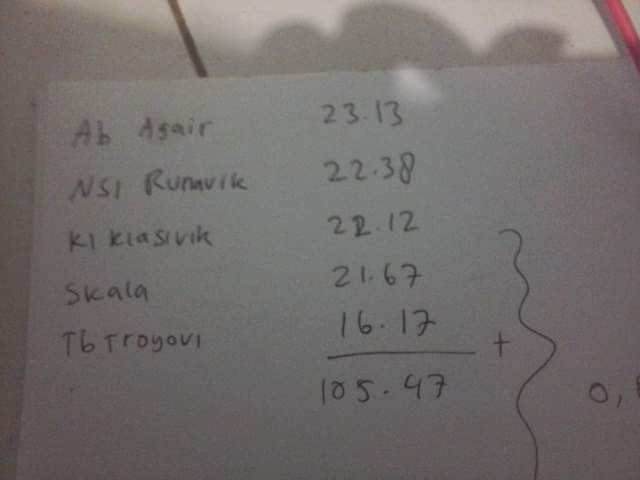 Ab Agair 23.13
NSI Runavik 22.38
KI Klasivik 22.12
Skala 21.67
Tb Troyovi 16.17
+
105.47
0,